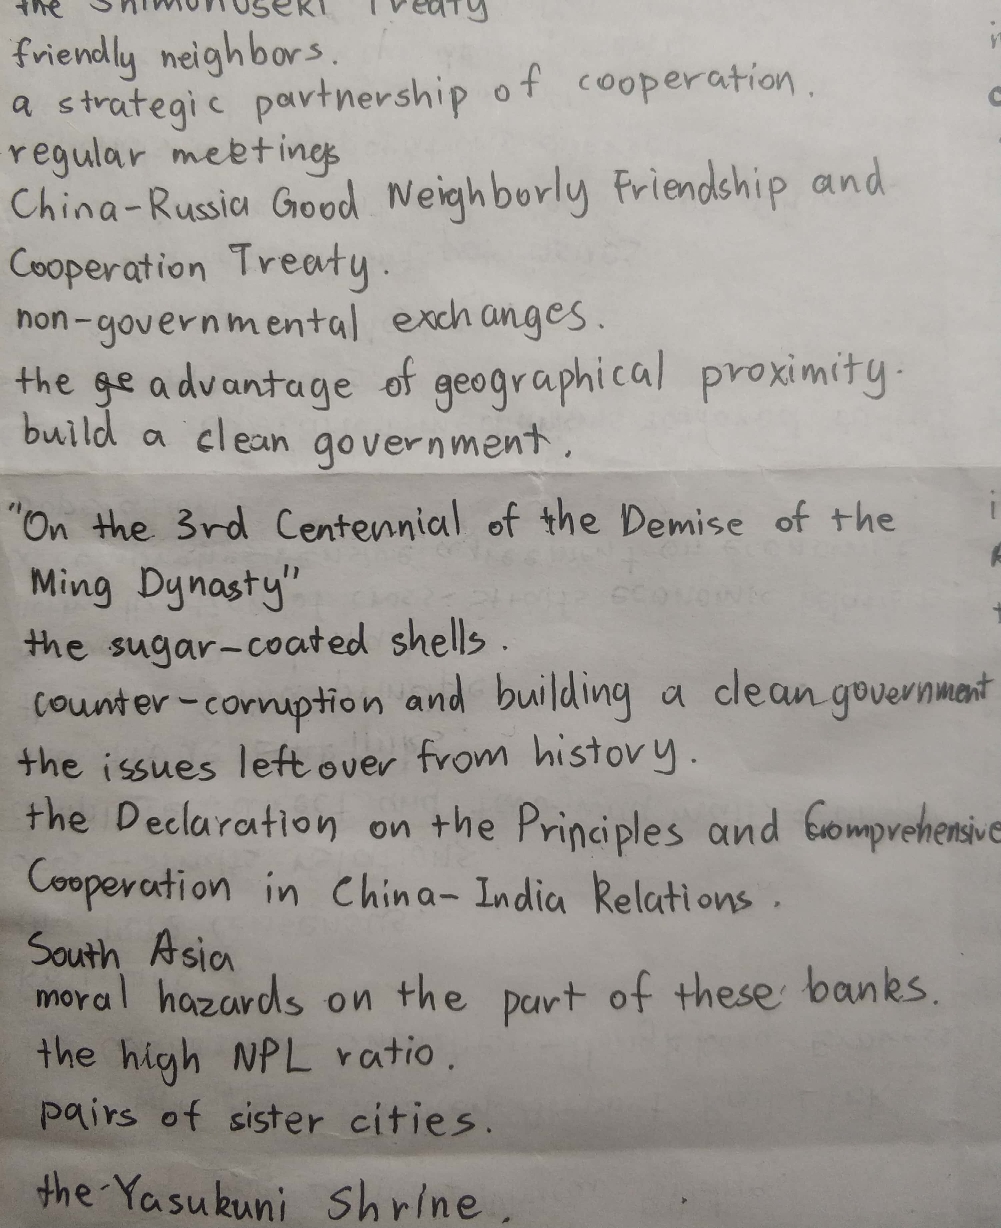 the Shimonoseki Treaty
friendly neighbors.
a strategic partnership of cooperation.
regular meetings
China-Russia Good Neighborly Friendship and
Cooperation Treaty.
non-governmental exchanges.
the advantage of geographical proximity.
build a clean government.
"On the 3rd Centennial of the Demise of the
Ming Dynasty"
the sugar-coated shells.
counter-corruption and building a clean government
the issues left over from history.
the Declaration on the Principles and Comprehensive
Cooperation in China-India Relations.
South Asia
moral hazards on the part of these banks.
the high NPL ratio.
pairs of sister cities.
the Yasukuni Shrine.